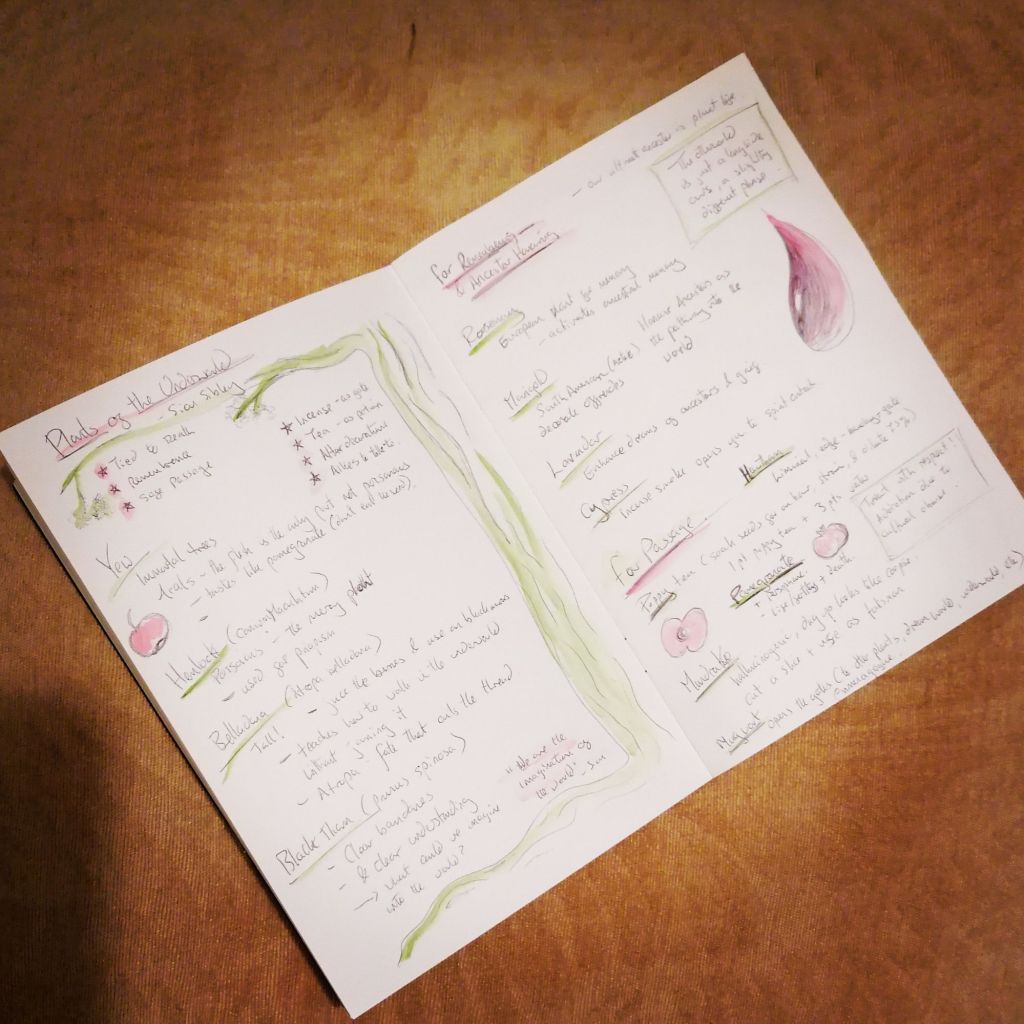 Plants of the Underworld
- Sian Sibley
Tied to Death
Remembrance
Safe passage
Incense - as gate
Tea - as potion
Altar decorations
Allies to talk to.
Yew
Immortal trees
Arals - the flesh is the only part not poisonous
- tastes like pomegranate (don't eat seeds).
Hemlock
Poisonous - The mercy plant
- used for
Belladona (Atropa belladona)
Tall!
- juice the berries & use on blackness
- teaches how to walk in the underworld
without joining it
- Atropa - fate that cuts the thread
Black Thorn (Prunus spinosa)
- Clear boundaries
- & clear understanding
→ what could we imagine
into the world?
"We are the
imagination of
the world" - Sian
- our ultimate ancestor is plant life
The otherworld
is just a
ours, a slightly
different phase.
For Remembering -
& Ancestor Honouring
Rosemary
European plant for memory
- activates ancestral memory
Marigold
South American
decorate ofrendas
Honour Ancestors as
the pathway into the
world
Lavender
Enhance dreams of ancestors & grief
Cypress
Incense smoke opens you to spirit contact
Hawthorn
liminal, edge - boundary + gate
For Passage
Poppy
tea (soak seeds for an hour, strain, & dilute 75%)
1 pt poppy tea + 3 pts water
Pomegranate
+ Persephone
- life/fertility + death
Treat with respect!
Addiction due to
cultural abuse.
Mandrake
hallucinogenic, dry yo looks like corpse.
Cut a slice + use as talisman
Mugwort
opens the gates (to other planets, dream world, underworld, etc)